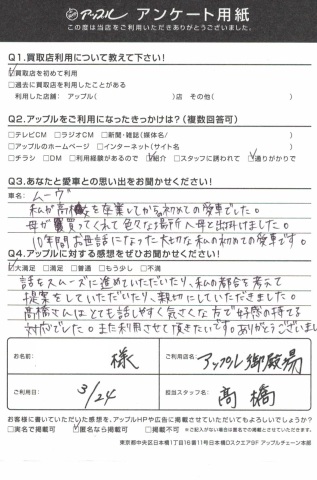 アップル アンケート用紙
この度は当店をご利用いただきありがとうございました。
Q1.買取店利用について教えて下さい!
☑買取店を初めて利用
□過去に買取店を利用したことがある
利用した店舗: アップル( )店 その他( )
Q2.アップルをご利用になったきっかけは?(複数回答可)
□テレビCM □ラジオCM □新聞・雑誌(媒体名/ )
□アップルのホームページ □インターネット(サイト名 )
□チラシ □DM □利用経験があるので ☑紹介 □スタッフに誘われて ☑通りがかりで
Q3.あなたと愛車との思い出をお聞かせください!
車名: ムーヴ
私が高校を卒業してから初めての愛車でした。
母が買ってくれて色々な場所へ母と出掛けました。
10年間お世話になった大切な私の初めての愛車です。
Q4.アップルに対する感想をぜひお聞かせください!
☑大満足 □満足 □普通 □もう少し □不満
話をスムーズに進めていただいたり、私の都合を考えて
提案をしていただいたり、親切にしていただきました。
高橋さんはとても話しやすく気さくな方で好感の持てる
対応でした。また利用させて頂きたいです。ありがとうございまし
お名前: 様
ご利用店名: アップル御殿場
ご利用日: 3/24
担当スタッフ名: 高橋
お客様に書いていただいた感想を、アップルHPや広告に掲載させていただいてもよろしいでしょうか?
□実名で掲載可 ☑匿名なら掲載可 □掲載不可 ※ご記入がない場合は匿名での掲載とさせていただきます。
東京都中央区日本橋1丁目16番11号日本橋Dスクエア9F アップルチェーン本部